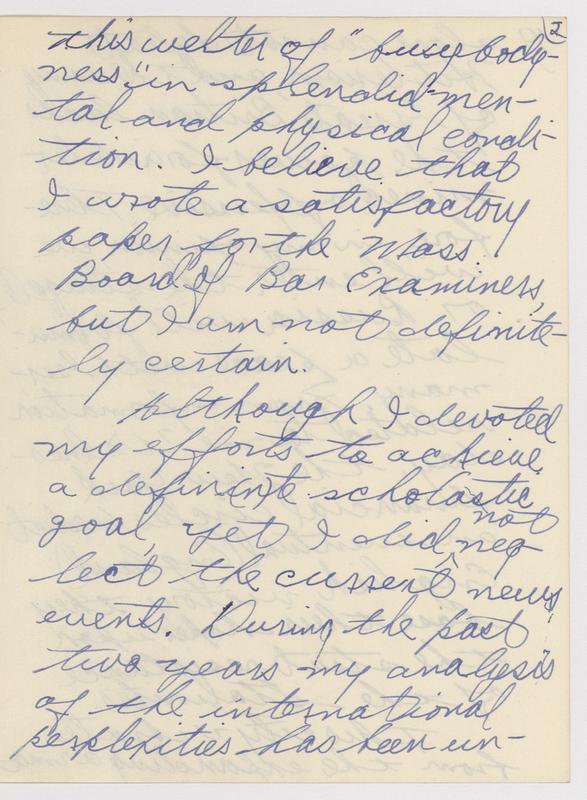 2
this welter of "busybody-
ness" in splendid men-
tal and physical condi-
tion. I believe that
I wrote a satisfactory
paper for the Mass.
Board of Bar Examiners,
but I am not definite-
ly certain.
Although I devoted
my efforts to achieve
a defininte scholastic
goal, yet I did not neg-
lect the current news
events. During the past
two years my analysis
of the international
perplexities has been un-